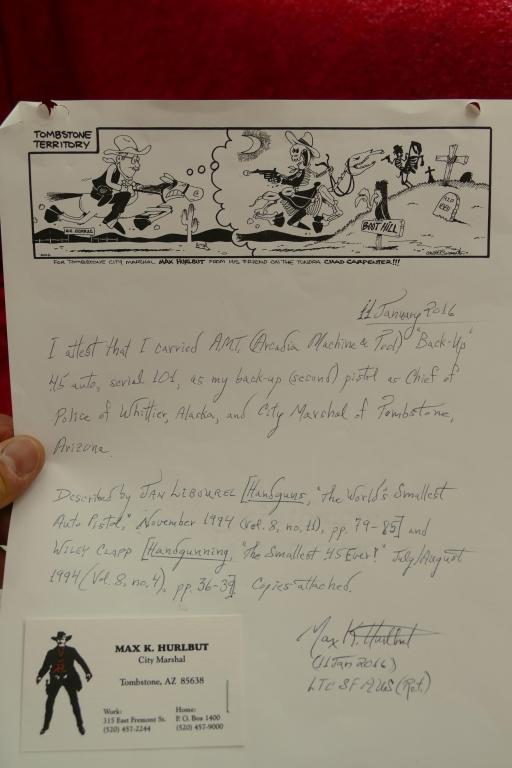 TOMBSTONE
TERRITORY
O.K. CORRAL
BOOT HILL
R.I.P.
FOR TOMBSTONE CITY MARSHAL MAX HURLBUT FROM HIS FRIEND ON THE TUNDRA CHAD CARPENTER!!!
11 January 2016
I attest that I carried AMT (Arcadia Machine & Tool) "Back-Up"
45 auto, serial LO1, as my back-up (second) pistol as Chief of
Police of Whittier, Alaska, and City Marshal of Tombstone,
Arizona.
Described by JAN LIBOUREL [Handguns, "The World's Smallest
Auto Pistol," November 1994 (Vol. 8, no. 11), pp. 79-85] and
WILEY CLAPP [Handgunning, "The Smallest 45 Ever!" July/August
1994 (Vol. 8, no. 4), pp. 36-39]. Copies attached.
Max K. Hurlbut
(11 Jan 2016)
LTC SF AUS (Ret.)
MAX K. HURLBUT
City Marshal
Tombstone, AZ 85638
Work: Home:
315 East Fremont St. P. O. Box 1400
(520) 457-2244 (520) 457-9000